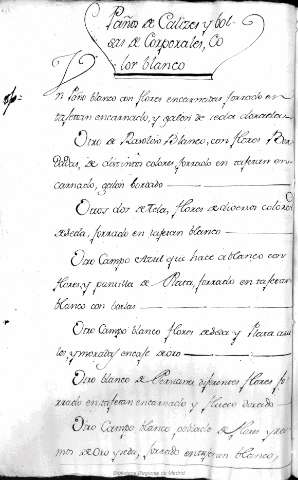 Paños de Calizes y bol-
sas de Corporales, Co
lor blanco
Un Paño blanco con flores encarnatas, forrado en
tafetan encarnado, y galon de seda
Otro de Blanco, con flores Bor
dadas, de distintos colores, forrado en tafetan en-
carnado, galon bordado
Otros dos de tela, flores de diversos colores
de seda, forrado en tafetan blanco
Otro Campo Azul que hace a blanco con
flores, y puntilla de Plata, forrado en tafetan
blanco con borlas
Otro Campo blanco flores de seda y Plata azu
les, y moradas encaje de oro
Otro blanco de Persiana diferentes flores fo
rrado en tafetan encarnado y flueco dorado
Otro Campo blanco poblado de flores, y ra-
mos de Oro y seda, forrado en tafetan blanco,
Biblioteca Regional de Madrid